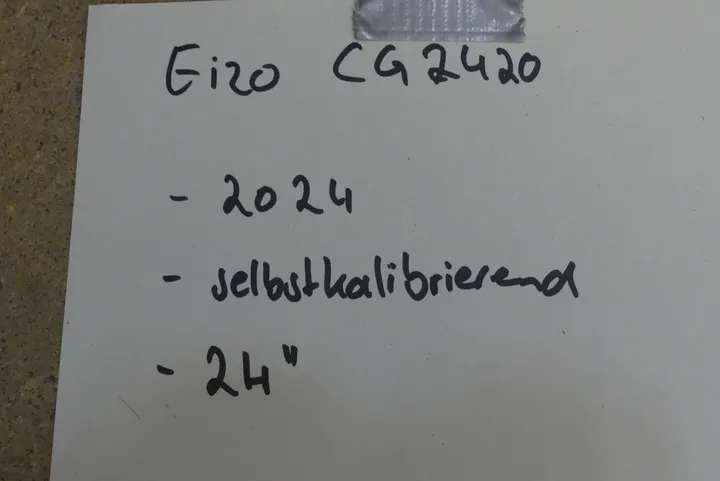 Eizo CG2420
- 2024
- selbstkalibrierend
- 24"